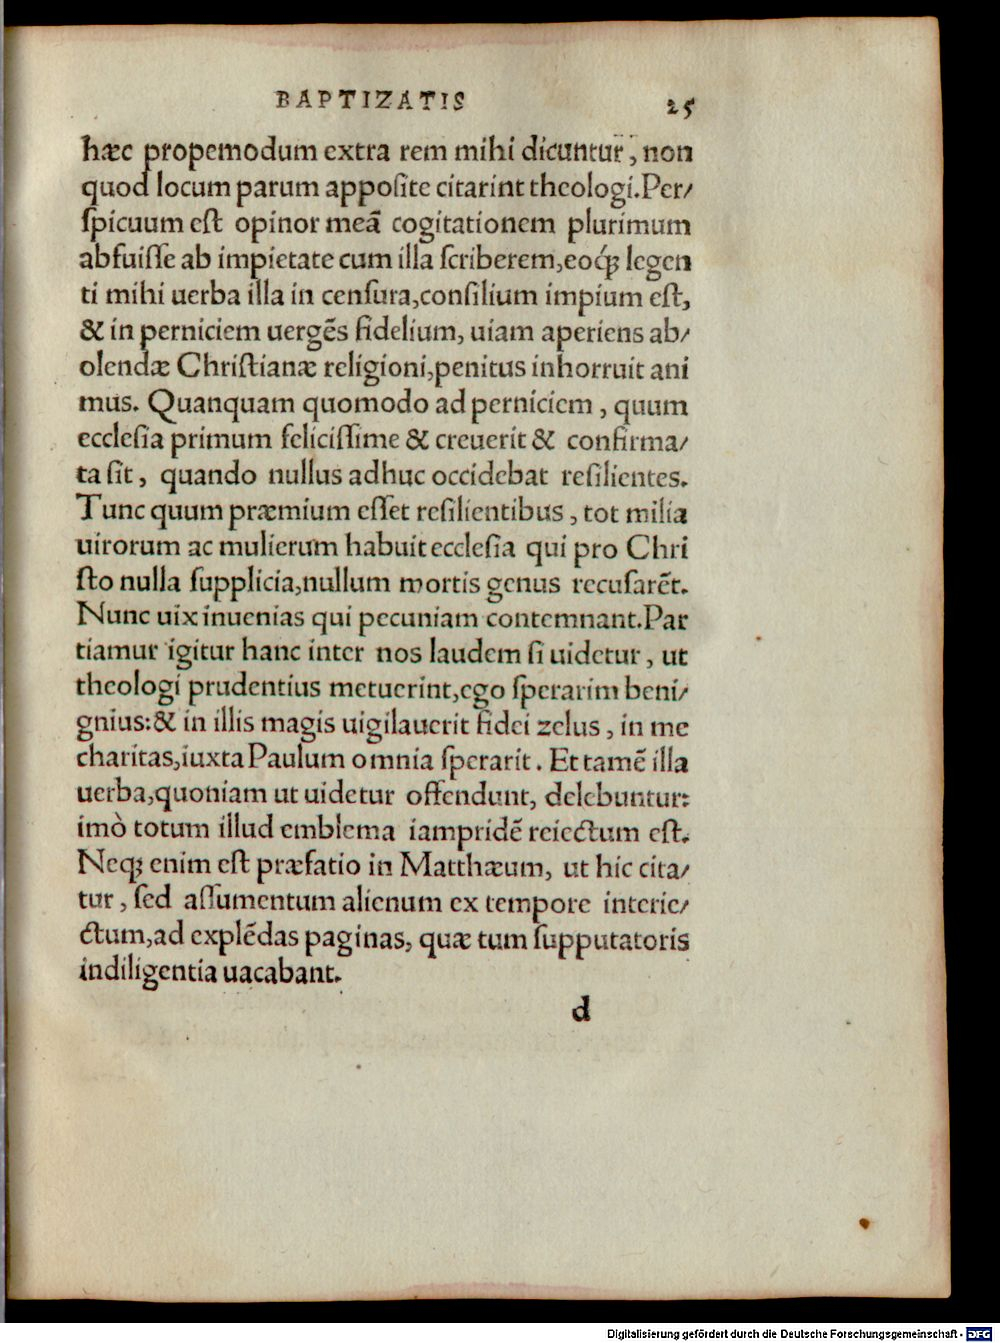 BAPTIZATIS 25
hæc propemodum extra rem mihi dicuntur, non
quod locum parum apposite citarint theologi.Per/
ſpicuum eſt opinor meã cogitationem plurimum
abfuiſſe ab impietate cum illa ſcriberem,eoq́ꝫ legen
ti mihi uerba illa in cenſura,conſilium impium eſt,
& in perniciem uergẽs fidelium, uiam aperiens ab/
olendæ Chriſtianæ religioni,penitus inhorruit ani
mus. Quanquam quomodo ad perniciem, quum
eccleſia primum feliciſſime & creuerit & confirma/
ta ſit, quando nullus adhuc occidebat reſilientes.
Tunc quum præmium eſſet reſilientibus, tot milia
uirorum ac mulierum habuit eccleſia qui pro Chri
ſto nulla ſupplicia,nullum mortis genus recuſarẽt.
Nunc uix inuenias qui pecuniam contemnant.Par
tiamur igitur hanc inter nos laudem ſi uidetur, ut
theologi prudentius metuerint,ego ſperarim beni/
gnius:& in illis magis uigilauerit fidei zelus, in me
charitas,iuxta Paulum omnia ſperarit. Et tamẽ illa
uerba,quoniam ut uidetur offendunt, delebuntur:
imò totum illud emblema iampridẽ reiectum eſt.
Neqꝫ enim eſt præfatio in Matthæum, ut hic cita/
tur, ſed aſſumentum alienum ex tempore interie/
ctum,ad explẽdas paginas, quæ tum ſupputatoris
indiligentia uacabant.
d
Digitalisierung gefördert durch die Deutsche Forschungsgemeinschaft - DFG